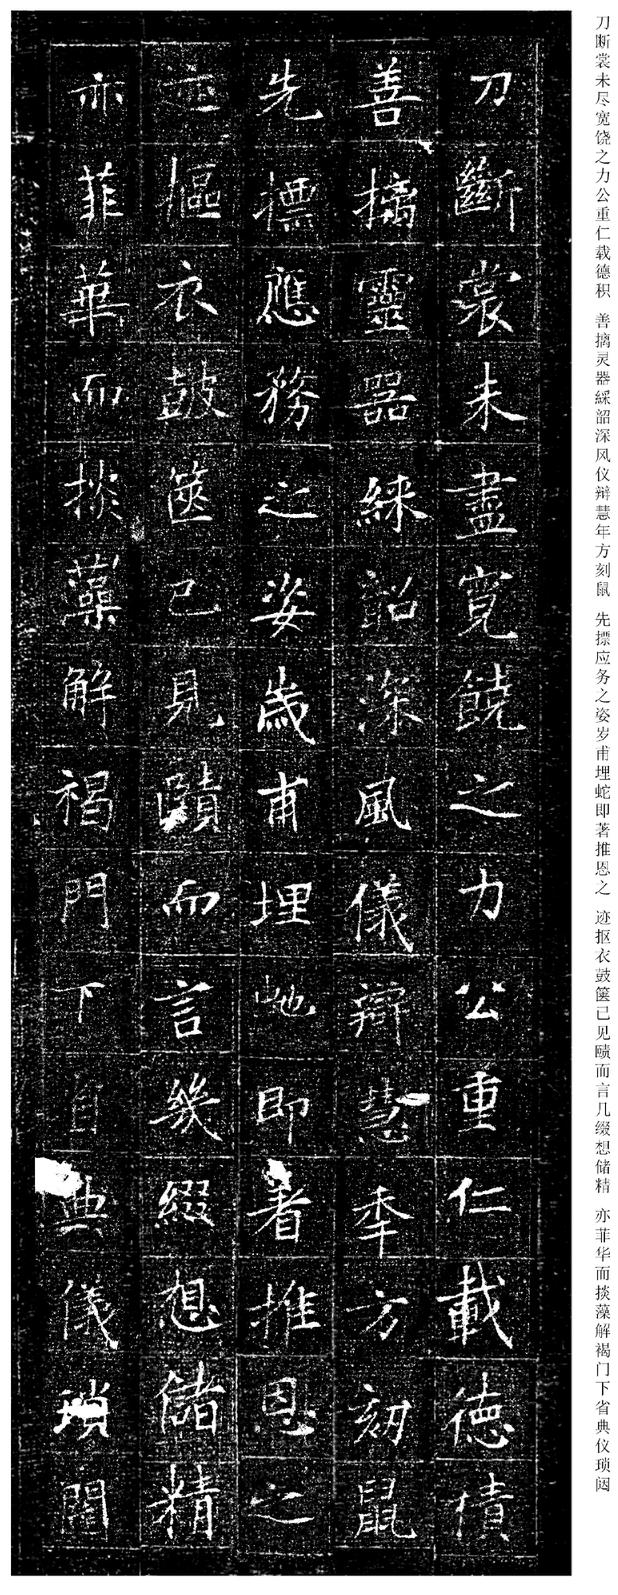 刀断裳未尽宽饶之力公重仁载德积 善摛灵器綵韶深风仪辩慧年方刻鼠 先摽应务之姿岁甫埋蛇即著推恩之 迹抠衣鼓箧己见赜而言几缀想储精 亦菲华而掞藻解褐门下省典仪琐闼
刀斷裳未盡寬饒之力公重仁載德積
善摛靈器綵韶深風儀辯慧年方刻鼠
先摽應務之姿歲甫埋虵即著推恩之
迹摳衣鼓篋己見賾而言幾綴想儲精
亦菲華而掞藻解褐門下省典儀瑣闥